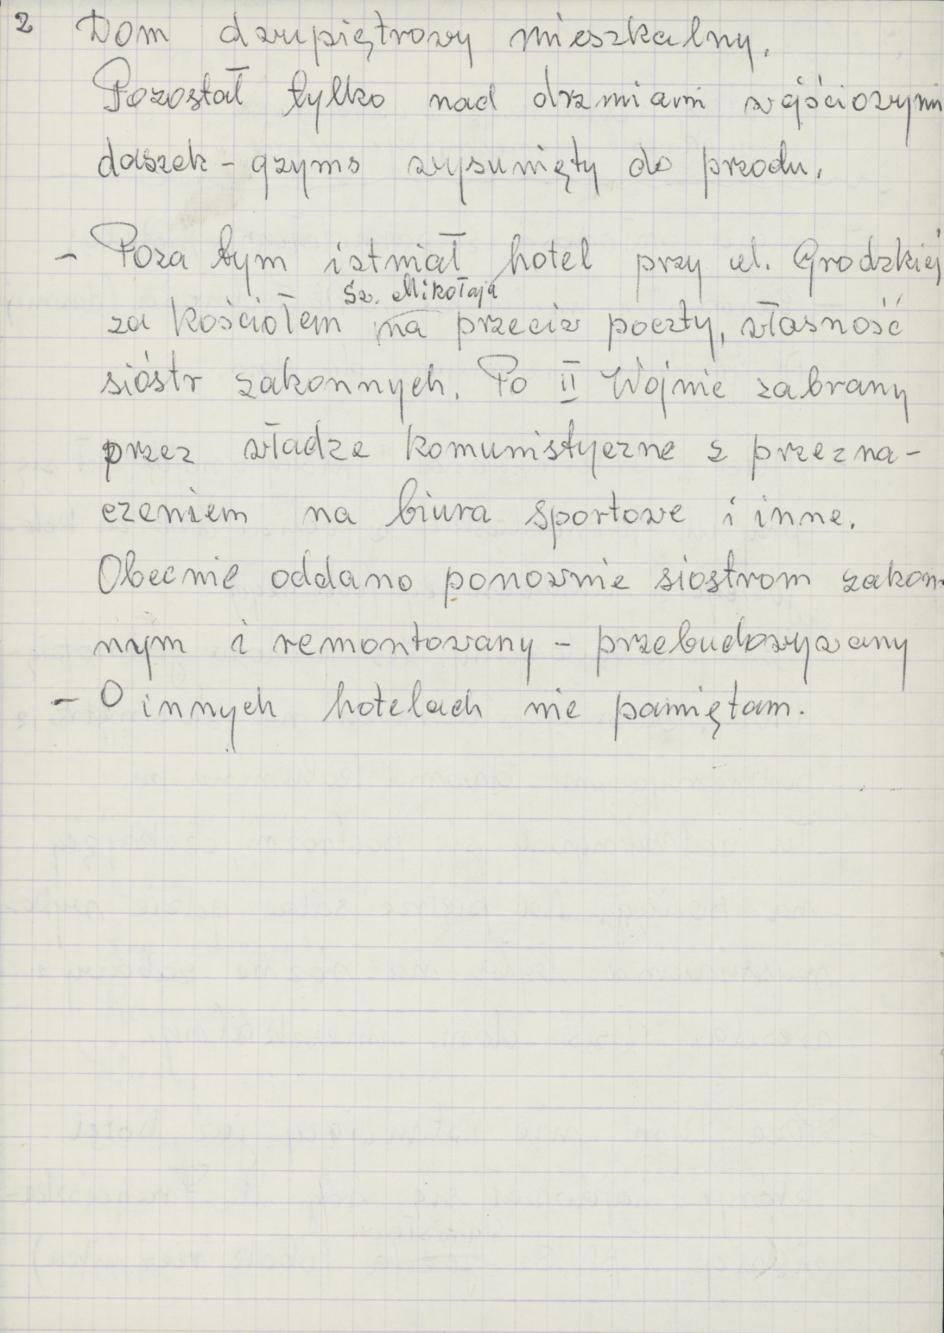 2 Dom dwupiętrowy mieszkalny.
Pozostał tylko nad drzwiami wejściowymi
daszek - gzyms wysunięty do przodu.
- Poza tym istniał hotel przy ul. Grodzkiej
św. Mikołaja
za kościołem na przeciw poczty, własność
sióstr zakonnych. Po II Wojnie zabrany
przez władze komunistyczne z przezna-
czeniem na biura sportowe i inne.
Obecnie oddano ponownie siostrom zakon-
nym i remontowany - przebudowywany
- O innych hotelach nie pamiętam.